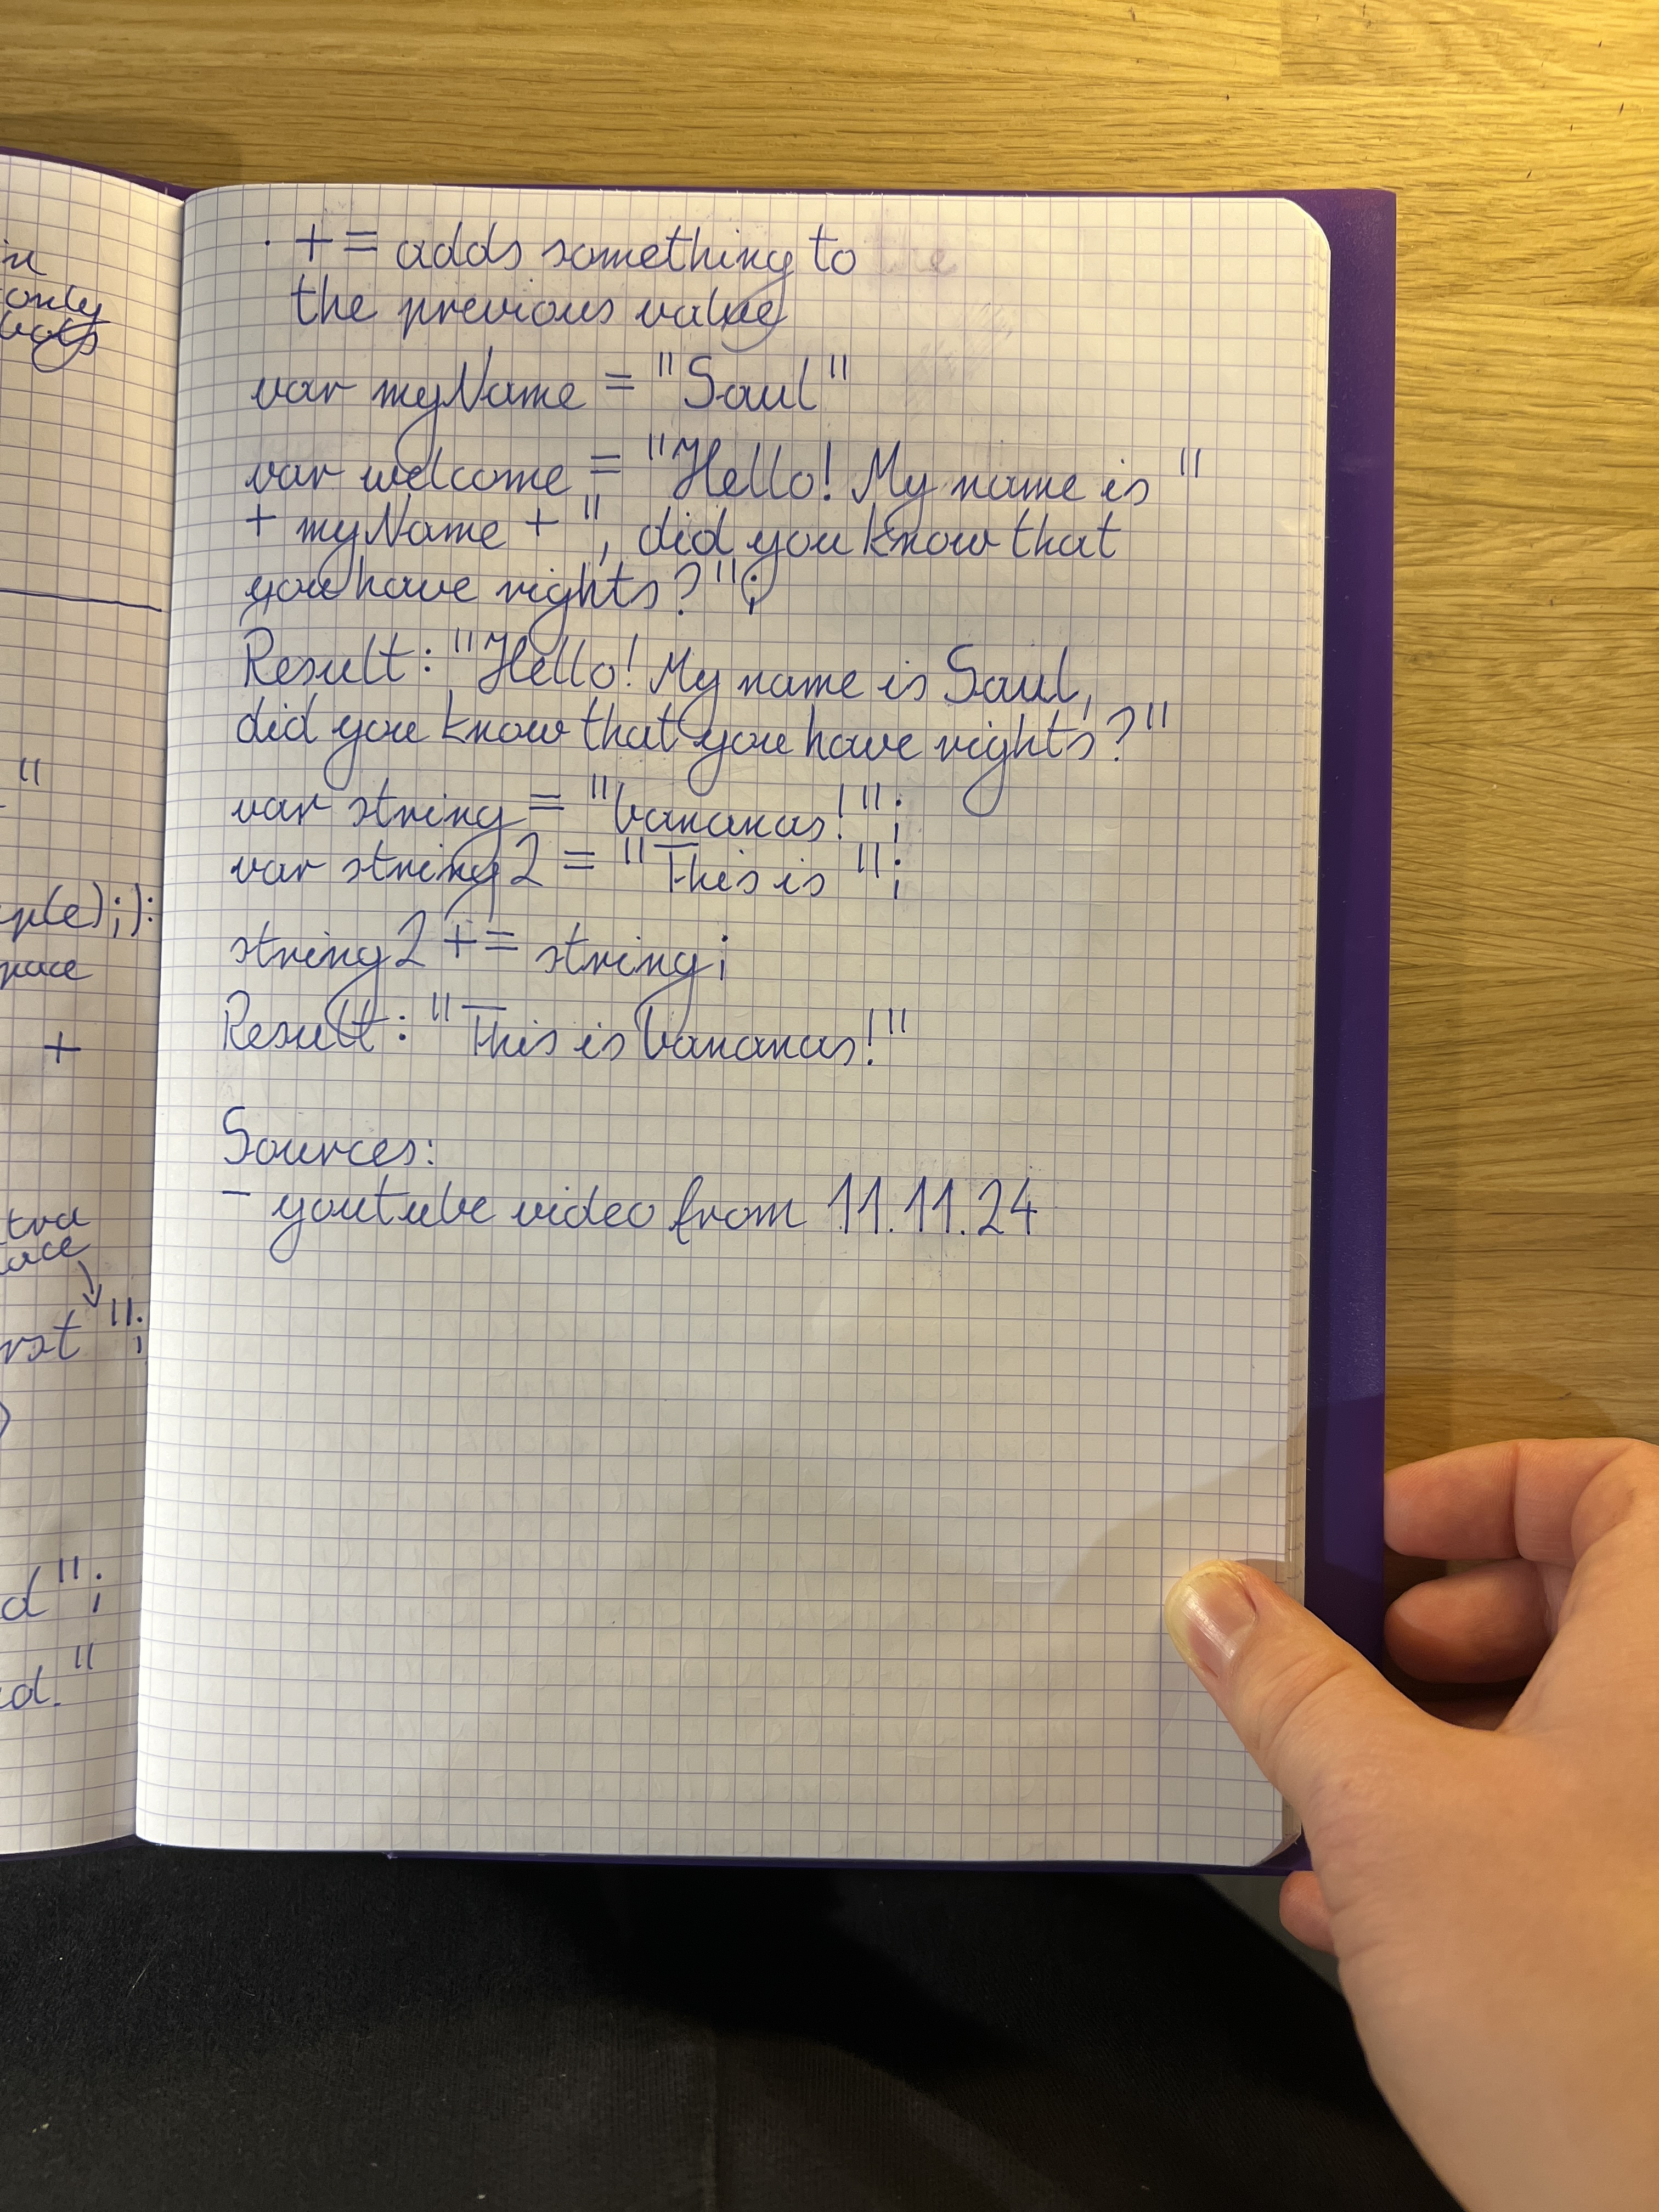 in
only
+= adds something to
the previous value
var myName = "Saul"
var welcome = "Hello! My name is "
+ myName + ", did you know that
you have rights?";
Result: "Hello! My name is Saul,
did you know that you have rights?"
var string = "bananas!";
var string2 = "This is ";
string2 += string;
Result: "This is bananas!"
Sources:
- youtube video from 11.11.24
"
+
";
d";
d."